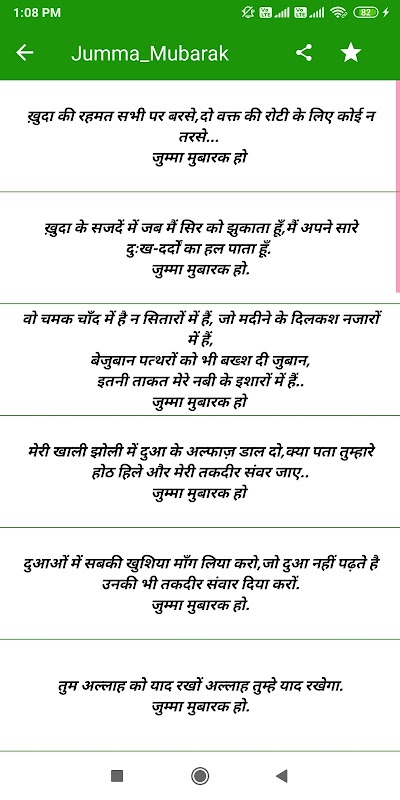 1:08 PM
82
Jumma_Mubarak
ख़ुदा की रहमत सभी पर बरसे,दो वक्त की रोटी के लिए कोई न
तरसे...
जुम्मा मुबारक हो
ख़ुदा के सजदें में जब मैं सिर को झुकाता हूँ,मैं अपने सारे
दुःख-दर्दों का हल पाता हूँ.
जुम्मा मुबारक हो.
वो चमक चाँद में है न सितारों में हैं, जो मदीने के दिलकश नजारों
में हैं,
बेजुबान पत्थरों को भी बख्श दी जुबान,
इतनी ताकत मेरे नबी के इशारों में हैं..
जुम्मा मुबारक हो
मेरी खाली झोली में दुआ के अल्फाज़ डाल दो,क्या पता तुम्हारे
होठ हिले और मेरी तकदीर संवर जाए..
जुम्मा मुबारक हो
दुआओं में सबकी खुशिया माँग लिया करो,जो दुआ नहीं पढ़ते है
उनकी भी तकदीर संवार दिया करों.
जुम्मा मुबारक हो.
तुम अल्लाह को याद रखों अल्लाह तुम्हे याद रखेगा.
जुम्मा मुबारक हो.